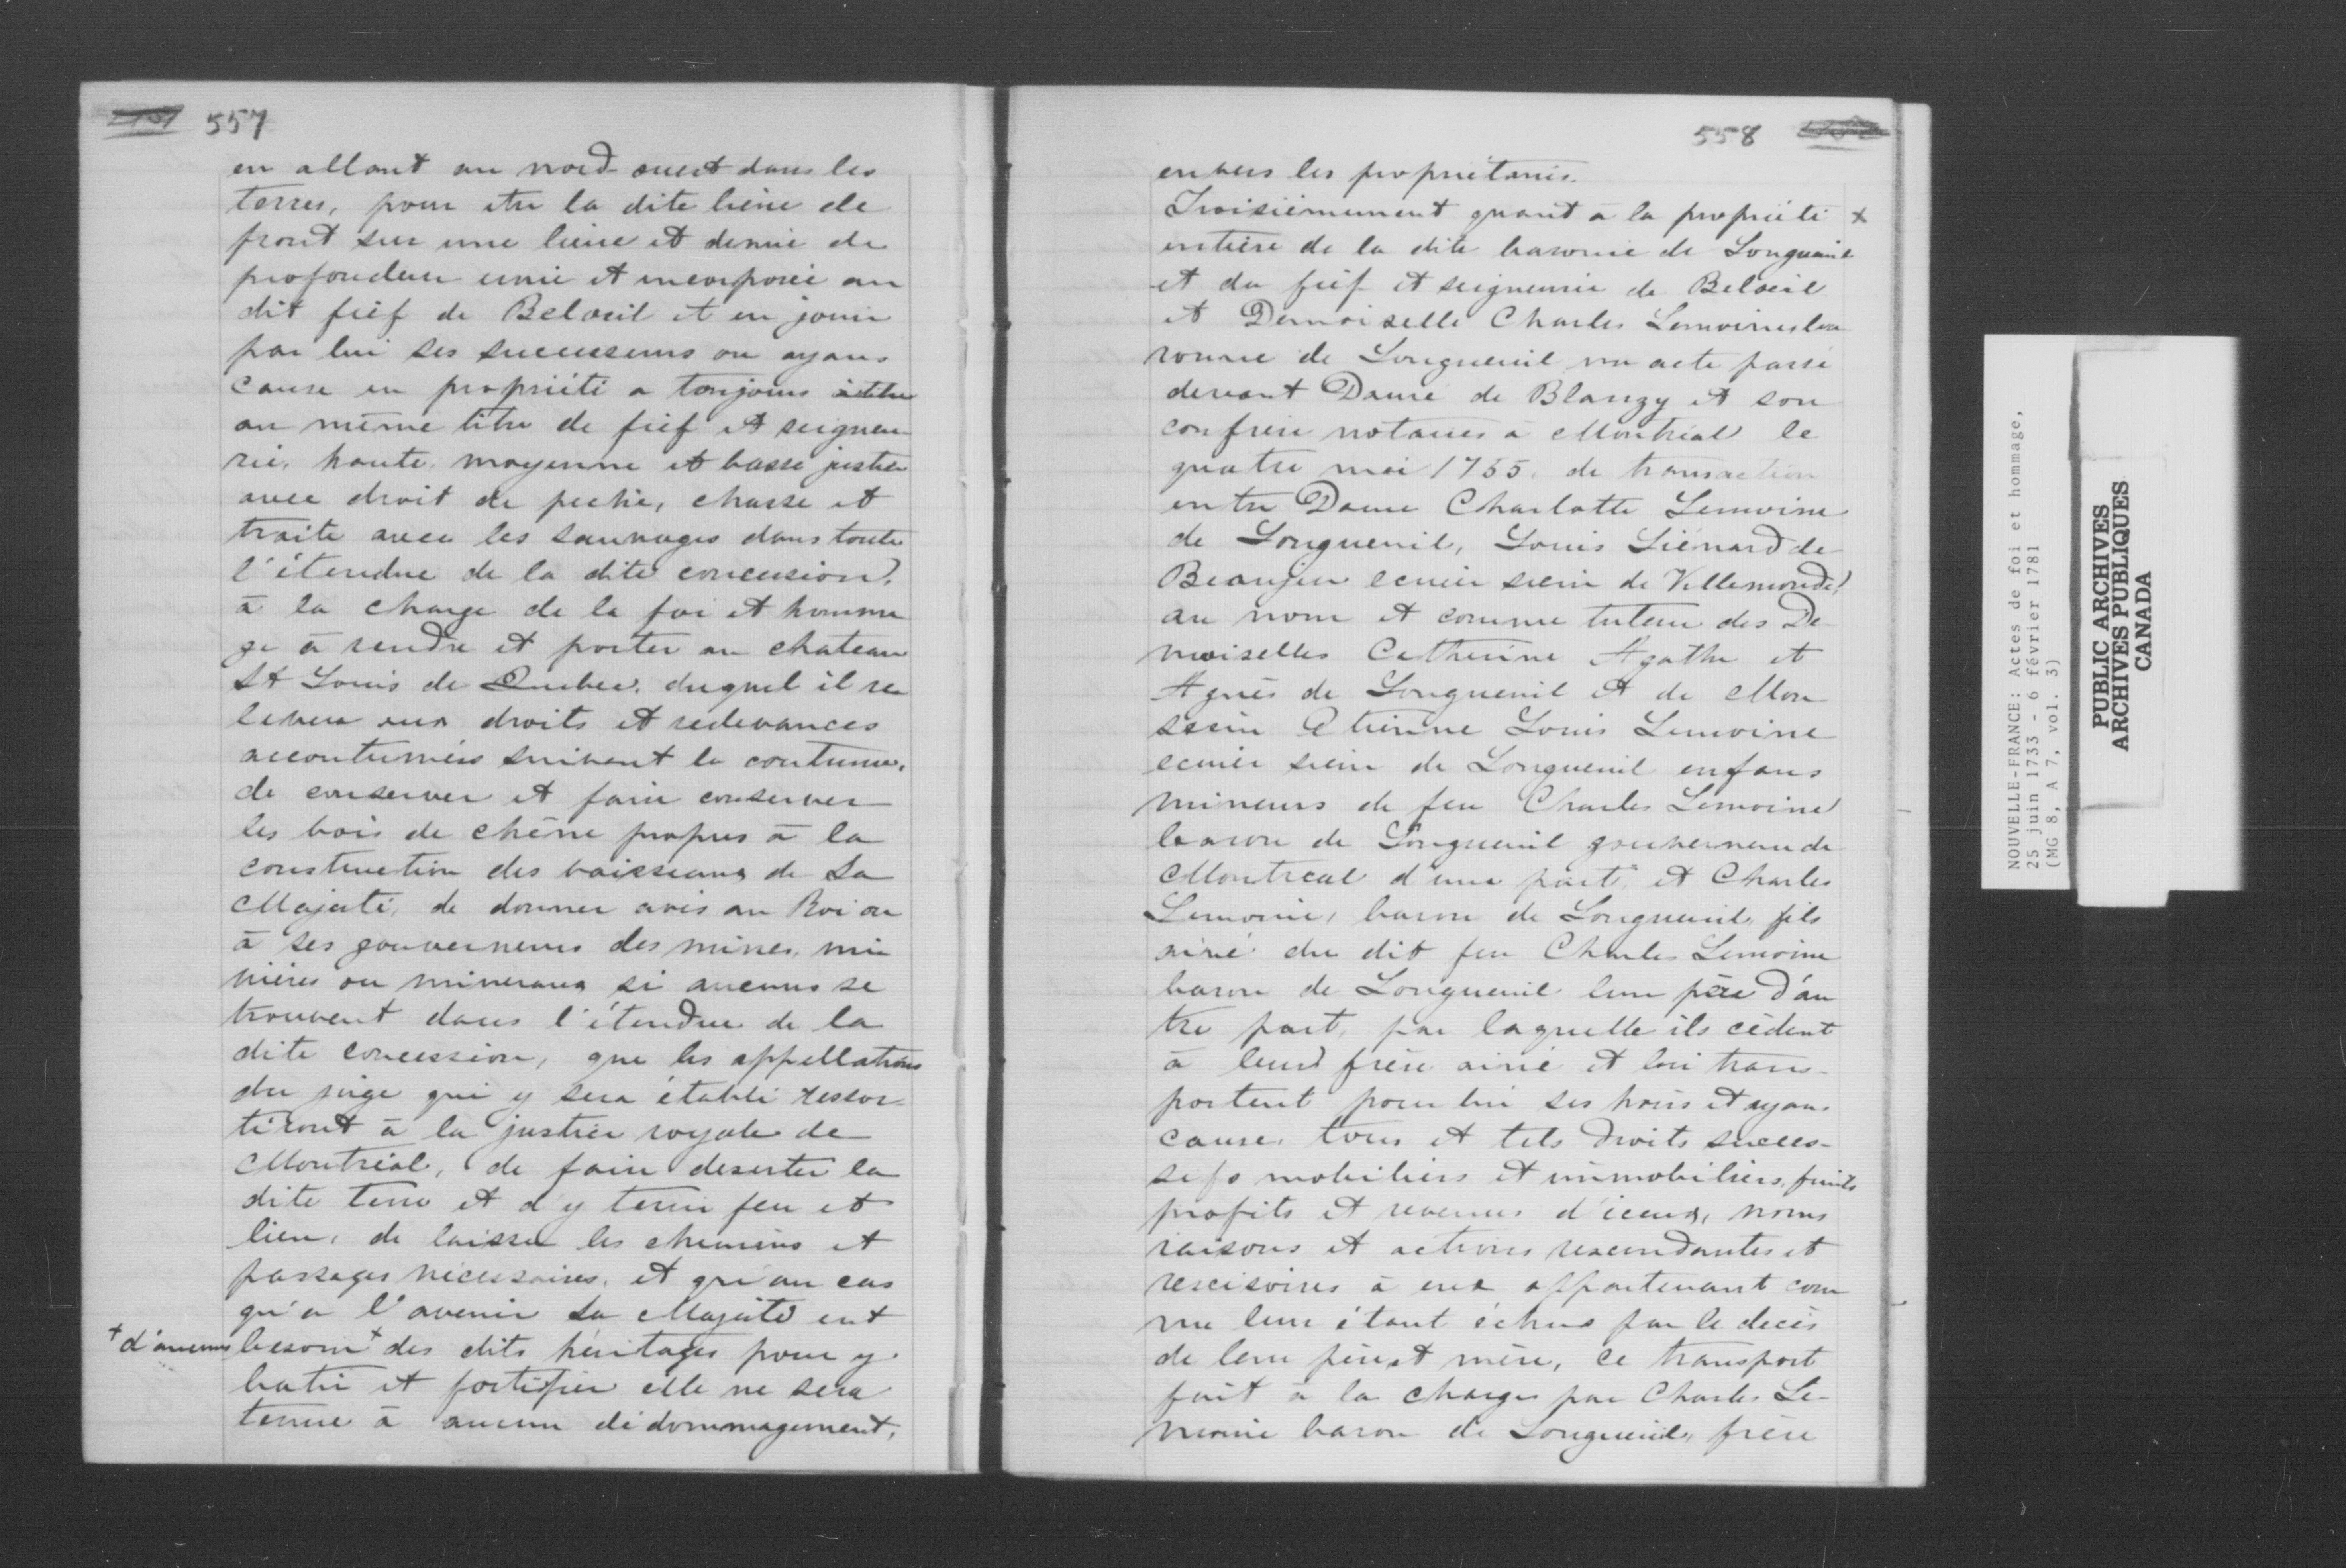 557
en allant au nord-ouest dans les
terres, pour être la dite lieue de
front sur une lieue et demie de
profondeur unie et incorporée au
dit fief de Beloeil et en jouir
par lui ses successeurs ou ayans
cause en propriété a toujours
au même titre de fief et seigneu-
rie, haute, moyenne et basse justice
avec droit de peche, chasse et
traite avec les sauvages dans toute
l'étendue de la dite concession,
à la charge de la foi et homma
ge à rendre et porter au chateau
St Louis de Quebec, duquel il re
levera aux droits et redevances
accoutumées suivant la coutume,
de conserver et faire conserver
les bois de chêne propres à la
construction des vaisseaux de Sa
Majesté, de donner avis au Roi ou
à ses gouverneurs des mines, mi
nières ou mineraux si aucuns se
trouvent dans l'étendue de la
dite concession, que les appellations
du juge qui y sera établi ressor-
tiront à la justice royale de
Montréal, de faire deserter la
dite terre et d'y tenir feu et
lieu, de laisser les chemins et
passages nécessaires, et qu'au cas
qu'a l'avenir Sa Majesté eut
+ d'aucuns besoin + des dits héritages pour y
batir et fortifier elle ne sera
tenue à aucun dédommagement,
558
envers les propriétaires.
Troisièmement quant à la propriété x
entière de la dite baronie de Longueuil
et du fief et seigneurie de Beloeil
et Demoiselle Charles Lemoine ba
ronne de Longueuil un acte passé
devant Danré de Blanzy et son
confrère notaires à Montréal le
quatre mai 1755. de transaction
entre Dame Charlotte Lemoine
de Longueuil, Louis Liénard de
Beaujeu ecuier sieur de Villemonde
au nom et comme tuteur des De
moiselles Catherine Agathe et
Agnès de Longueuil et de Mon
sieur Etienne Louis Lemoine
ecuier sieur de Longueuil enfans
mineurs de feu Charles Lemoine
baron de Longueuil gouverneur de
Montreal d'une part, et Charles
Lemoine, baron de Longueuil, fils
ainé du dit feu Charles Lemoine
baron de Longueuil leur père d'au
tre part, par laquelle ils cèdent
à leur frère ainé et lui trans-
portent pour lui ses hoirs et ayans
cause, tous et tels droits succes-
sifs mobiliers et immobiliers, fruits
profits et revenus d'iceux, noms
raisons et actions rescindantes et
rescisoires à eux appartenant com
me leur étant échus par le decès
de leur père et mère, ce transport
fait à la charge par Charles Le-
moine baron de Longueuil, frère
NOUVELLE-FRANCE: Actes de foi et hommage,
25 juin 1733 - 6 février 1781
(MG 8, A 7, vol. 3)
PUBLIC ARCHIVES
ARCHIVES PUBLIQUES
CANADA